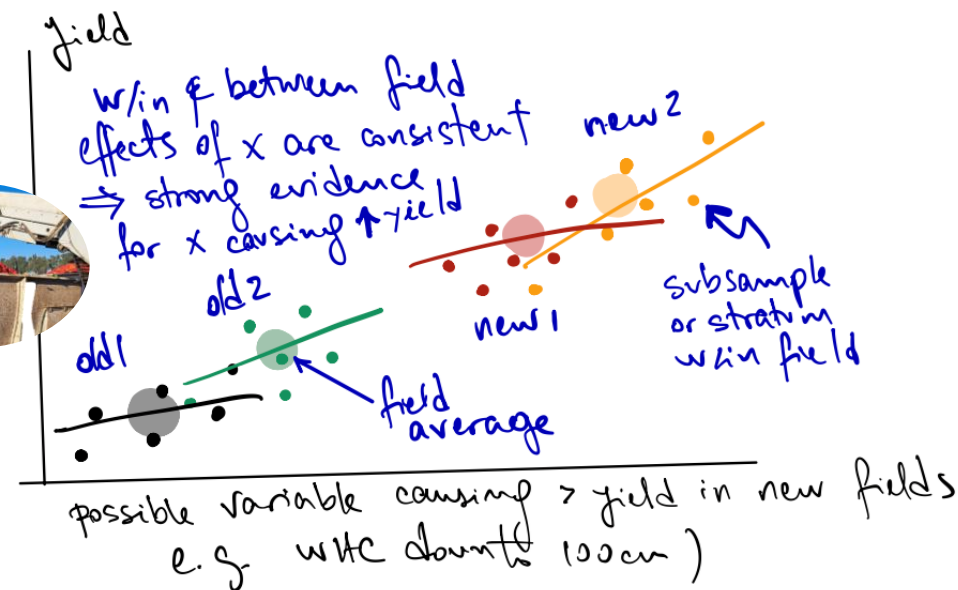 yield
w/in & between field
effects of x are consistent
⇒ strong evidence
for x causing ↑ yield
new 2
old 2
old 1
new 1
subsample
or stratum
w/in field
field
average
possible variable causing > yield in new fields
e.g. WHC down to 100cm)